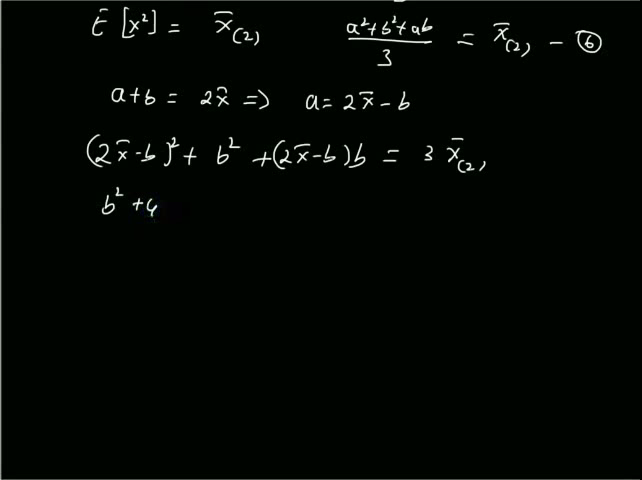 E [x²] = x̄₍₂₎    (a²+b²+ab)/3 = x̄₍₂₎ – ⑥
a+b = 2x̄ => a = 2x̄ – b
(2x̄-b)² + b² + (2x̄-b)b = 3 x̄₍₂₎
b² + 4